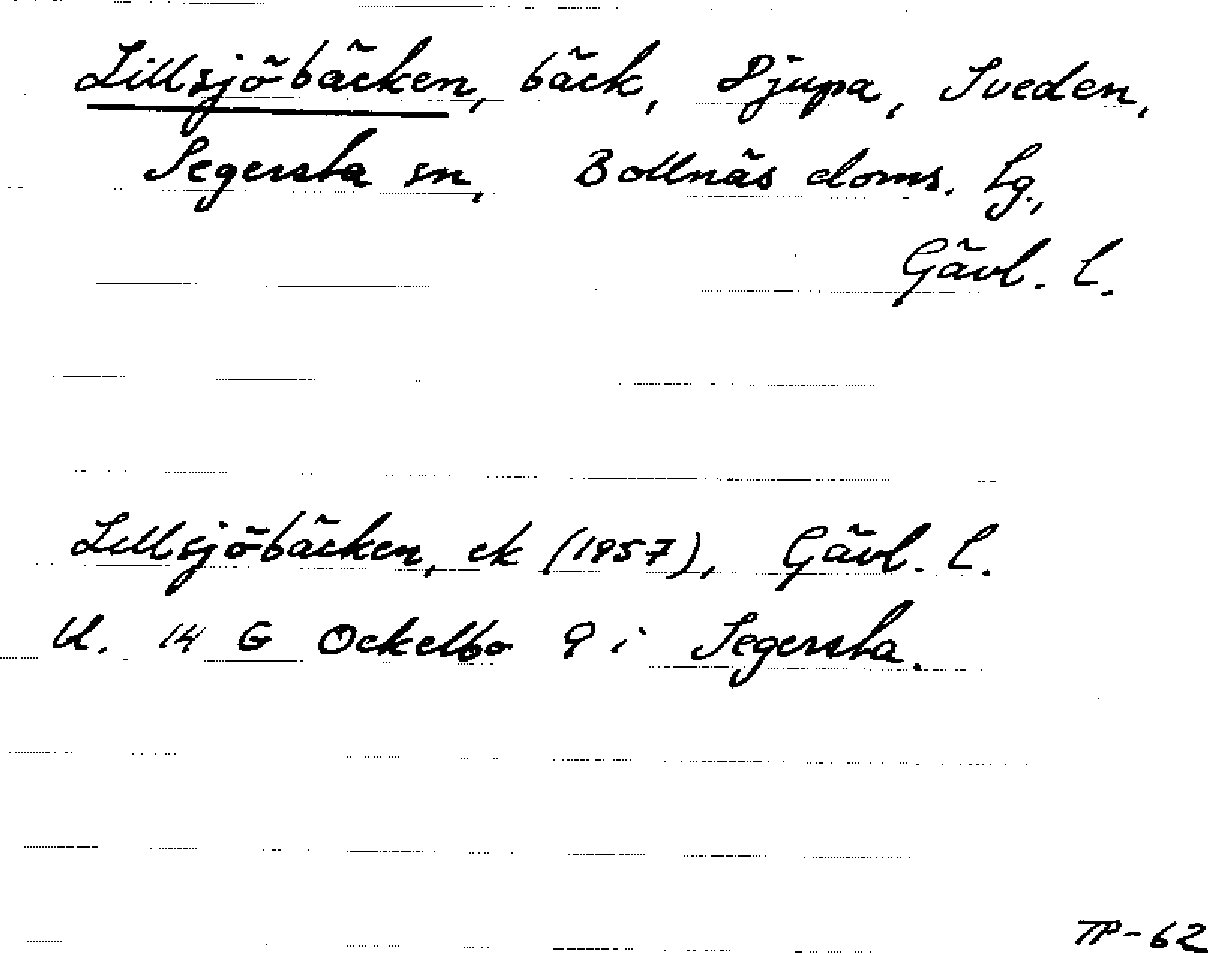 Lillsjöbäcken, bäck, Djupa, Sveden,
Segersta sn, Bollnäs doms. lg.,
Gävl. l.
Lillsjöbäcken, ek (1957), Gävl. l.
kl. 14 G Ockelbo 9 i Segersta.
TP-62